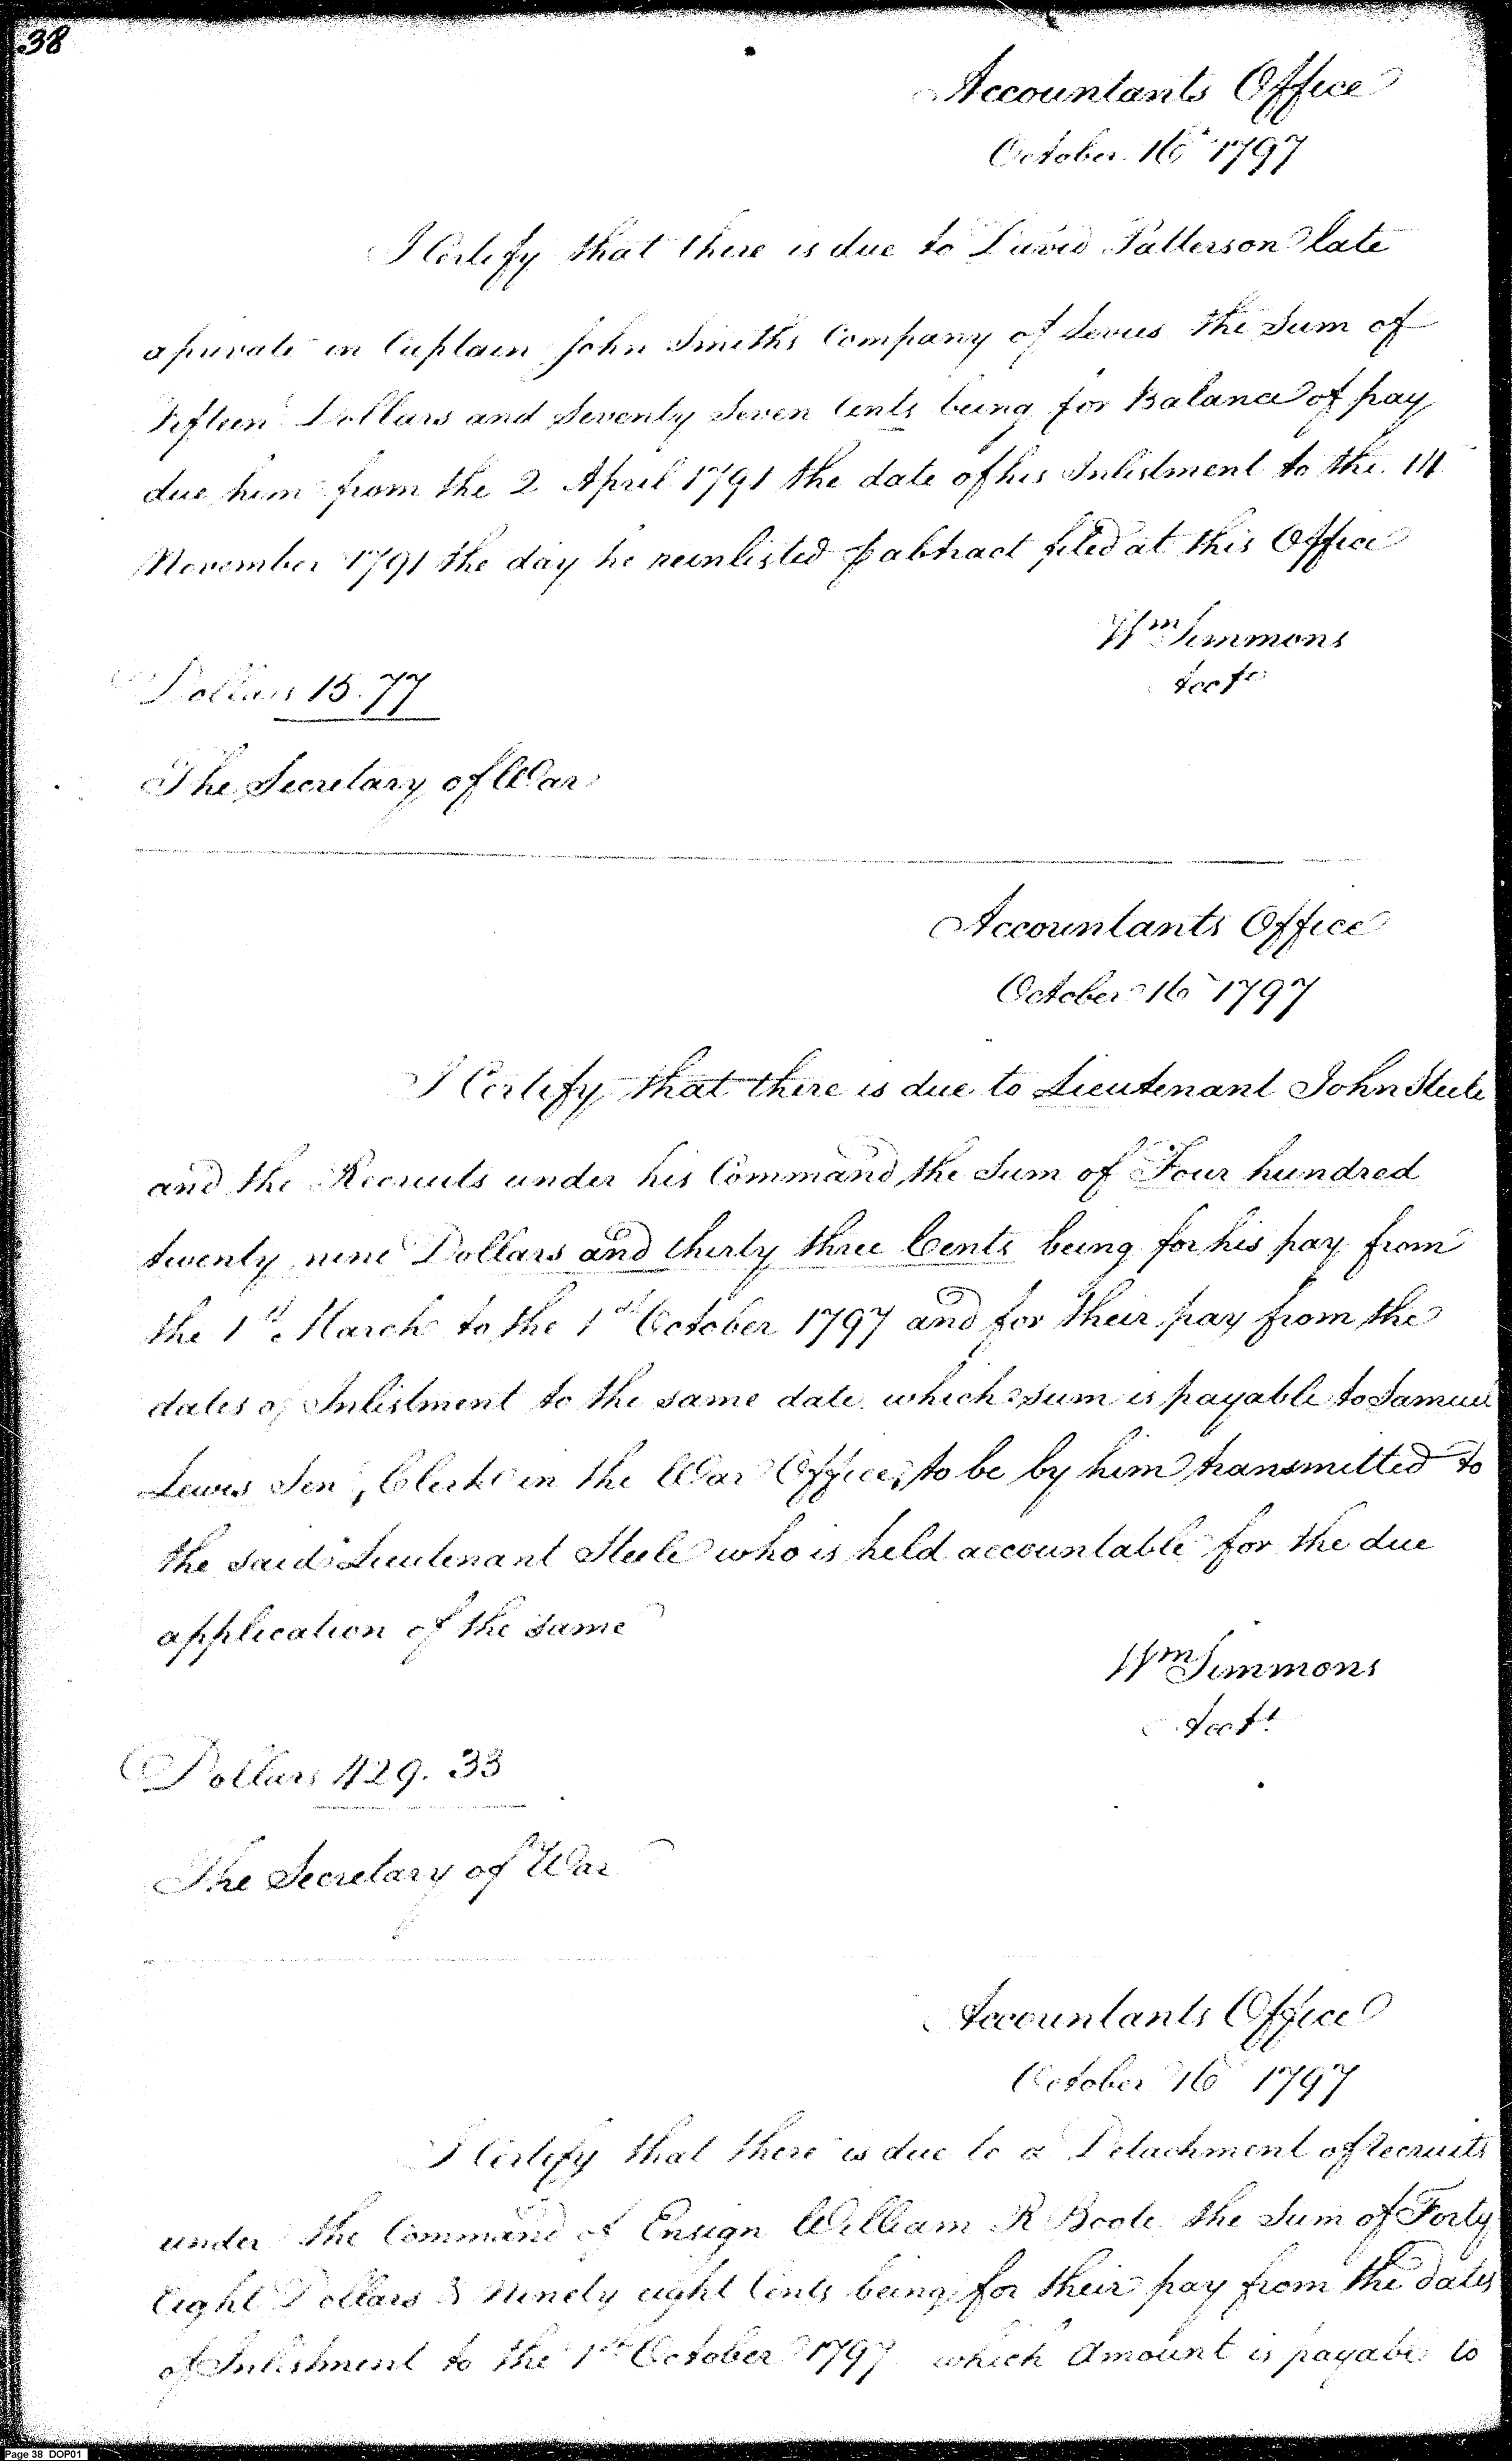 38
Accountants Office
October 16 1797
I Certify that there is due to David Patterson late
a private in Captain John Smiths Company of Levies the Sum of
Fifteen Dollars and Seventy Seven Cents being for Balance of pay
due him from the 2 April 1791 the date of his Inlistment to the 14
November 1791 the day he reinlisted ⅌ abstract filed at this Office
Wm Simmons
Acct
Dollars 15.77
The Secretary of War
Accountants Office
October 16 1797
I Certify that there is due to Lieutenant John Steele
and the Recruits under his Command, the Sum of Four hundred
twenty nine Dollars and thirty three Cents being for his pay from
the 1st March to the 1st October 1797 and for their pay from the
dates of Inlistment to the same date. which sum is payable to Samuel
Lewis Senr, Clerk in the War Office, to be by him transmitted to
the said Lieutenant Steele who is held accountable for the due
application of the same
Wm Simmons
Acct
Dollars 429.33
The Secretary of War
Accountants Office
October 16 1797
I Certify that there is due to a Detachment of recruits
under the Command of Ensign William R Boote the Sum of Forty
Eight Dollars & Ninety eight Cents being for their pay from the dates
of Inlistment to the 1st October 1797 which Amount is payable to
Page 38 DOP01